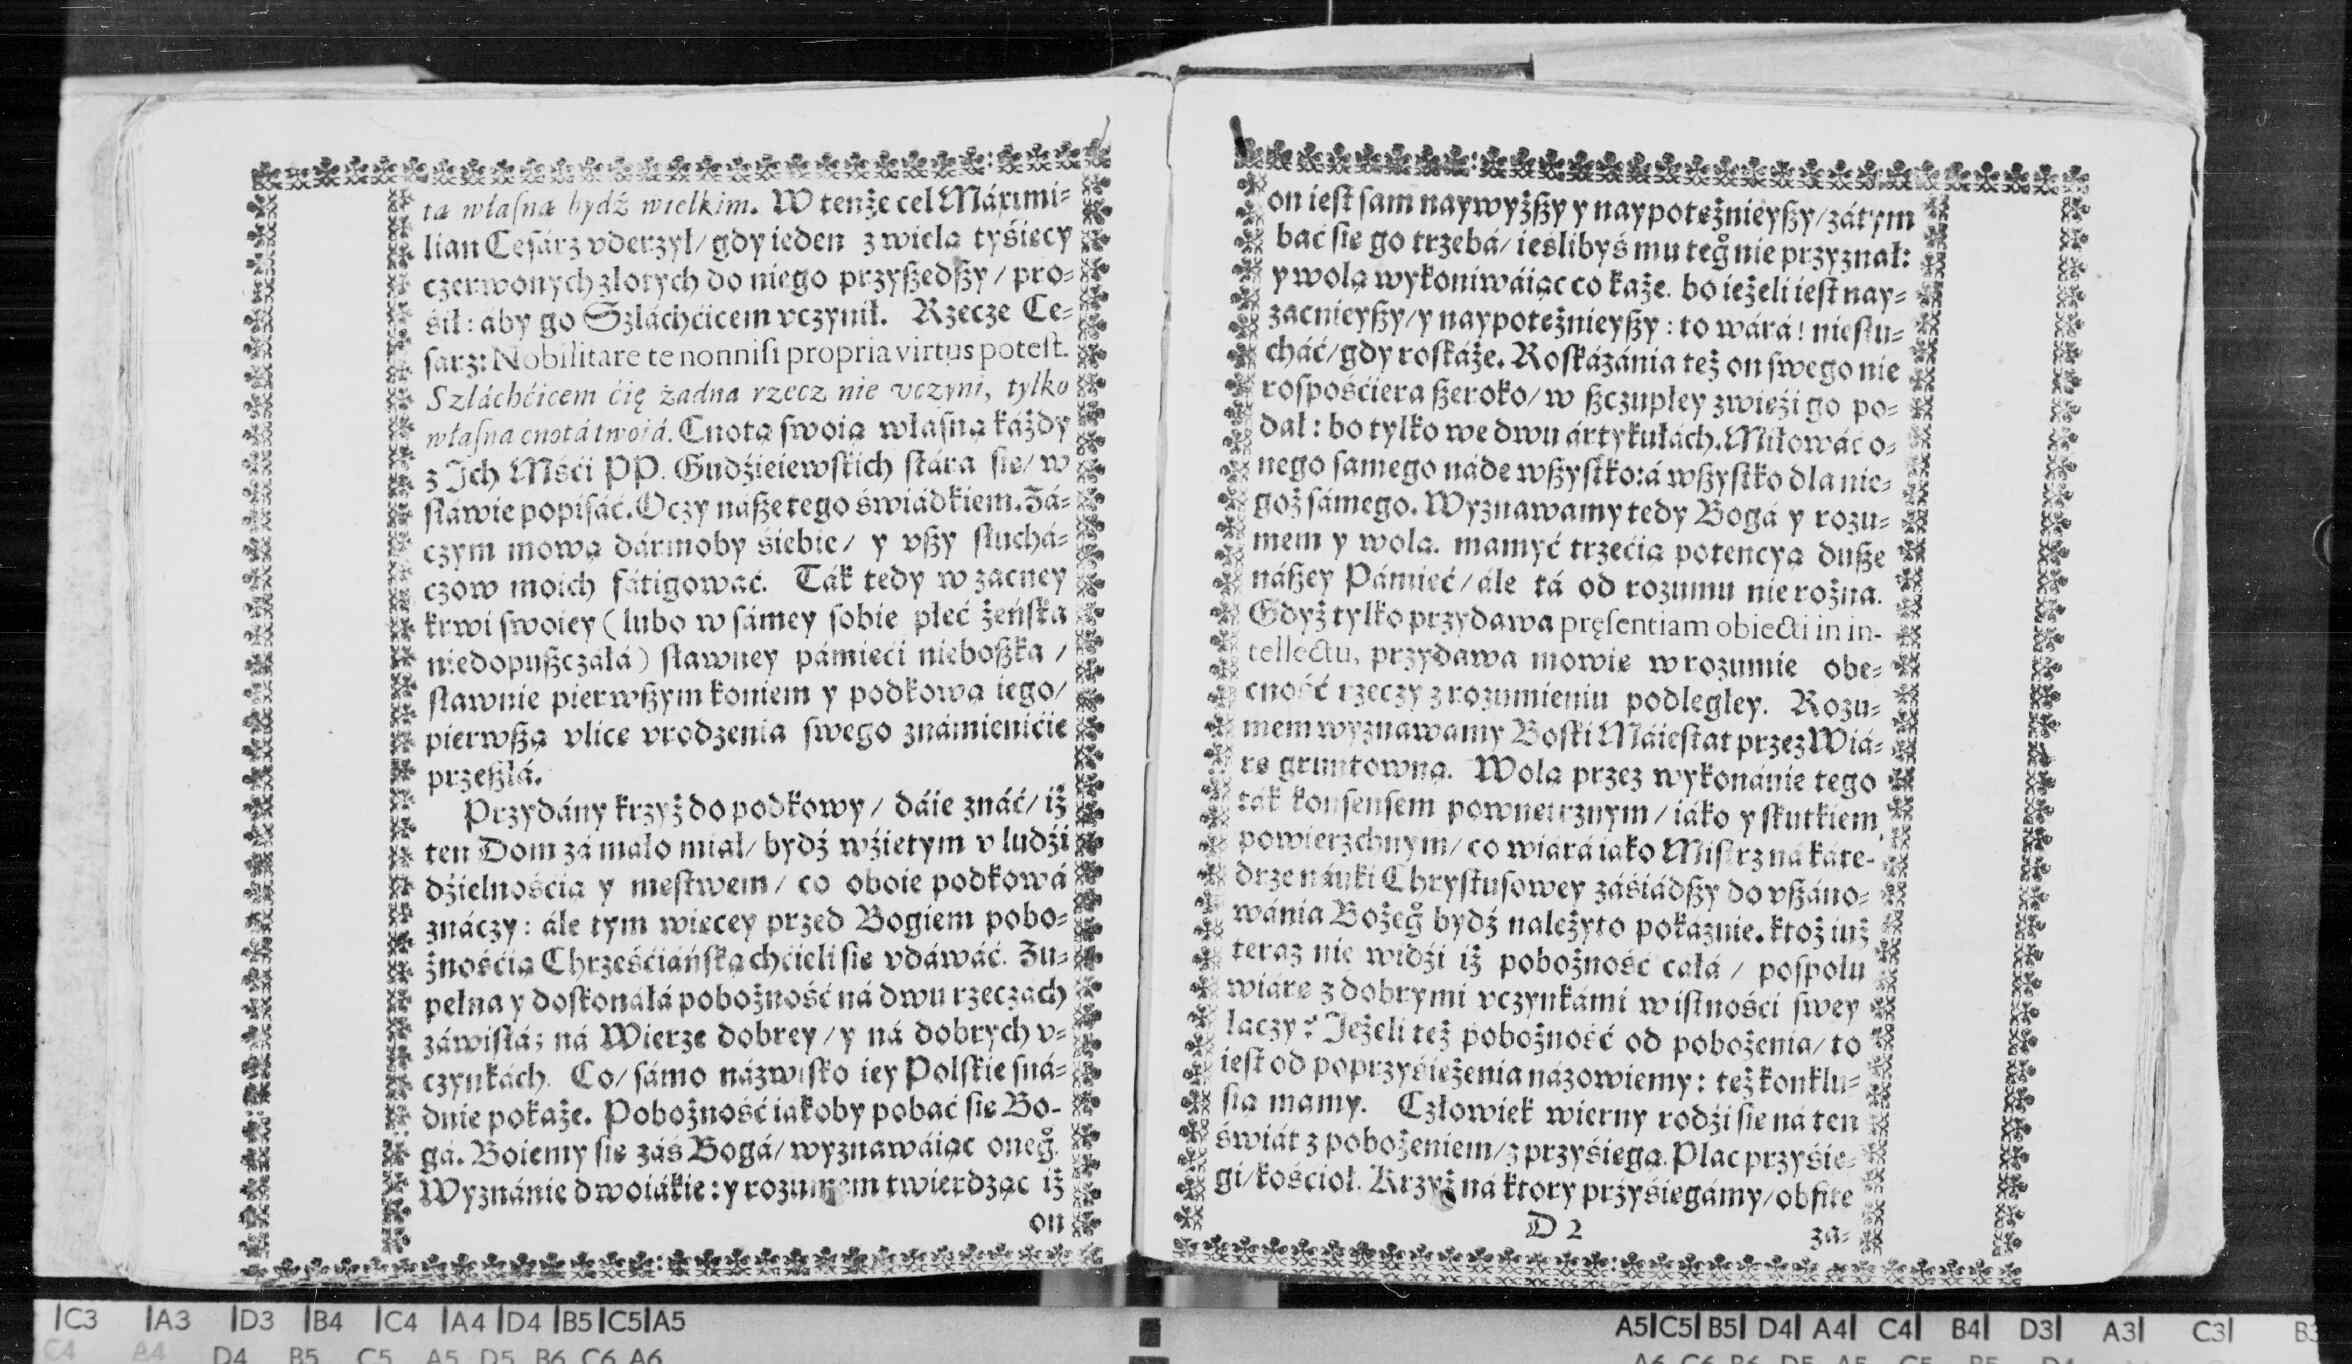 tą własną bydź wielkim. W tenże cel Máximi-
lian Cesárz vderzył/ gdy ieden z wielą tyśięcy
czerwonych złotych do niego przyszedszy/ pro-
śił: aby go Szláchćicem vczynił. Rzecze Ce-
sarz: Nobilitare te nonnisi propria virtus potest.
Szláchćicem ćię żadna rzecz nie vczyni, tylko
własna cnotá twoiá. Cnotą swoią własną káżdy
z Ich Mśći PP. Gudźieiewskich stára się/ w
sławie popisáć. Oczy násze tego świádkiem. Zá-
czym mową dármoby śiebie/ y vszy słuchá-
czow moich fátigować. Ták tedy w zacney
krwi swoiey (lubo w sámey sobie płeć żeńska
niedopuszczáłá) sławney pámięći nieboszka/
sławnie pierwszym koniem y podkową iego/
pierwszą vlicę vrodzenia swego známienićie
przeszłá.
Przydány krzyż do podkowy/ dáie znáć/ iż
ten Dom zá máło miał/ bydź wźiętym v ludźi
dźielnośćią y męstwem/ co oboie podkowá
znáczy: ále tym więcey przed Bogiem pobo-
żnośćią Chrześćiáńską chćieli się vdáwáć. Zu-
pełna y doskonáłá pobożność ná dwu rzeczách
záwisłá; ná Wierze dobrey/ y ná dobrych v-
czynkách. Co/ sámo názwisko iey Polskie sná-
dnie pokaże. Pobożność iakoby pobać się Bo-
gá. Boiemy się záś Bogá/ wyznawáiąc oneg̊.
Wyznánie dwoiákie: y rozumem twierdząc iż
on
on iest sam naywyższy y naypotężnieyszy/ zátym
bać się go trzebá/ ieślibyś mu teg̊ nie przyznał:
y wolą wykoniwáiąc co każe. bo ieżeli iest nay-
zacnieyszy/ y naypotężnieyszy: to wárá! niesłu-
cháć/ gdy roskáże. Roskázánia też on swego nie
rospośćiera szeroko/ w szczupłey zwięźi go po-
dał: bo tylko we dwu ártykułách. Miłowáć o-
nego samego náde wszystko: á wszystko dla nie-
goż sámego. Wyznawamy tedy Bogá y rozu-
mem y wolą. mamyć trzećią potencyą dusze
nászey Pámięć/ ále tá od rozumu nie rożna.
Gdyż tylko przydawa pręsentiam obiecti in in-
tellectu, przydawa mowię w rozumie obe-
cność rzeczy z rozumieniu podległey. Rozu-
mem wyznawamy Boski Máiestat przez Wiá-
rę gruntowną. Wolą przez wykonánie tego
ták konsensem pownętrznym/ iáko y skutkiem
powierzchnym/ co wiárá iako Mistrz ná káte-
drze náuki Chrystusowey záśiádszy do vszáno-
wánia Bożeg̊ bydź należyto pokaznie. ktoż iuż
teraz nie widźi iż pobożność cáłá/ pospołu
wiárę z dobrymi vczynkámi w istnośći swey
łączy? Jeżeli też pobożność od pobożenia/ to
iest od poprzyśiężenia názowiemy: też konklu-
sią mamy. Człowiek wierny rodźi się ná ten
świát z pobożeniem/ z przyśięgą. Plac przyśię-
gi/ kośćioł. Krzyż ná ktory przyśięgámy/ obfite
D 2
za-